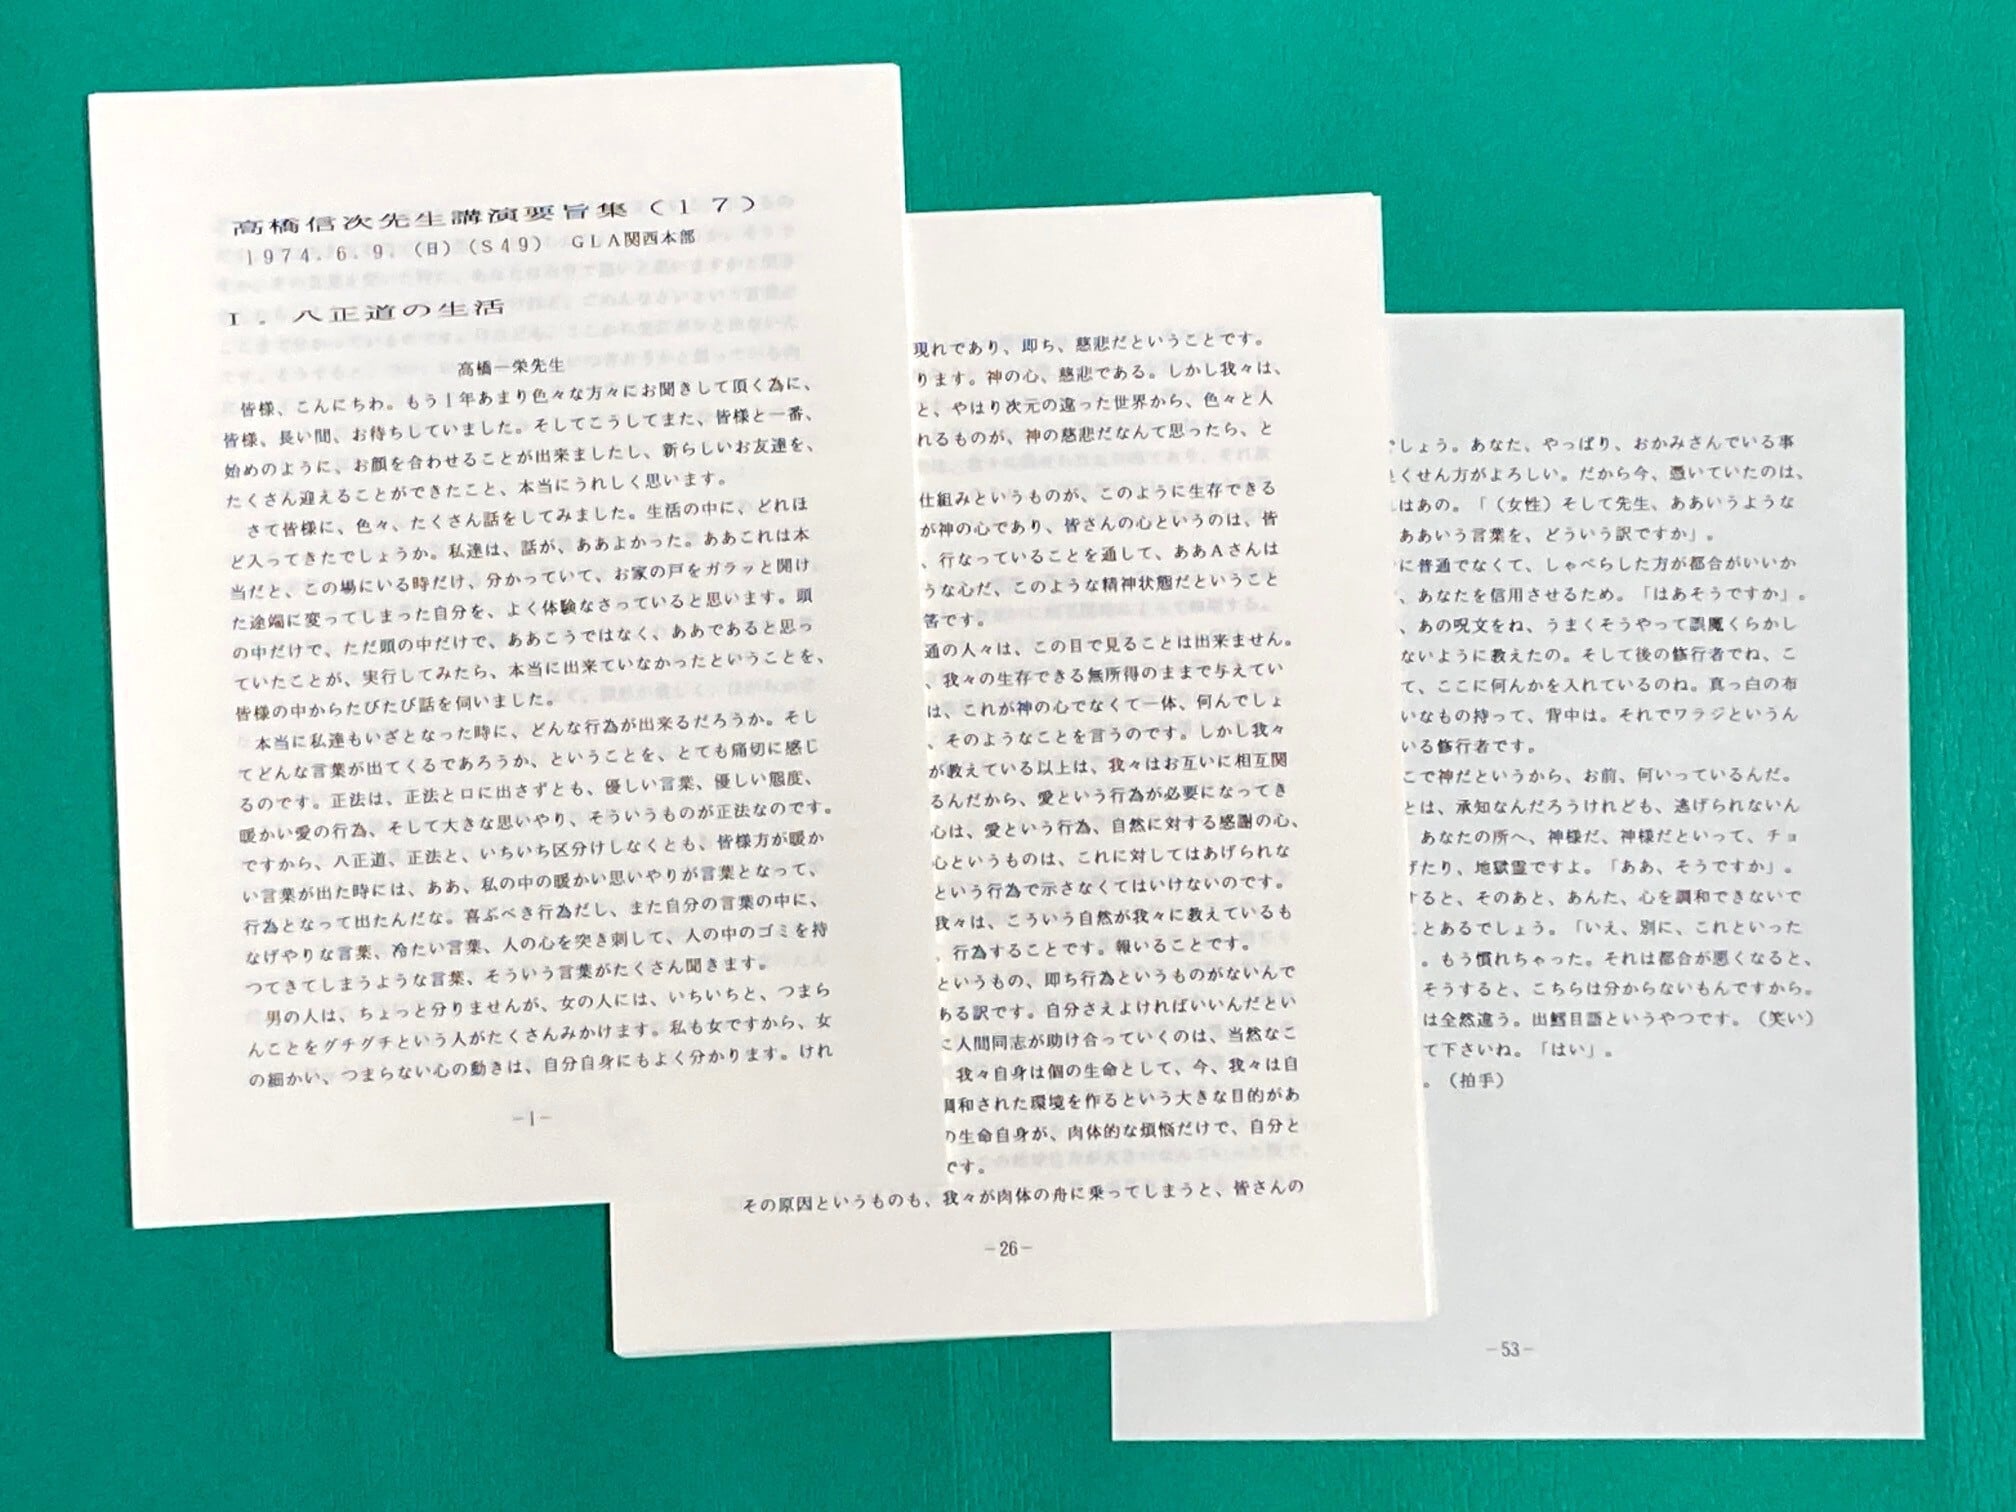 高橋信次先生講演要旨集（１７）
１９７４．６．９．（日）（Ｓ４９）　ＧＬＡ関西本部
Ｉ．八正道の生活
高橋一栄先生
皆様、こんにちわ。もう１年あまり色々な方々にお聞きして頂く為に、
皆様、長い間、お待ちしていました。そしてこうしてまた、皆様と一番、
始めのように、お顔を合わせることが出来ましたし、新らしいお友達を、
たくさん迎えることができたこと、本当にうれしく思います。
さて皆様に、色々、たくさん話をしてみました。生活の中に、どれほ
ど入ってきたでしょうか。私達は、話が、ああよかった。ああこれは本
当だと、この場にいる時だけ、分かっていて、お家の戸をガラッと開け
た途端に変ってしまった自分を、よく体験なさっていると思います。頭
の中だけで、ただ頭の中だけで、ああこうではなく、ああであると思っ
ていたことが、実行してみたら、本当に出来ていなかったということを、
皆様の中からたびたび話を伺いました。
本当に私達もいざとなった時に、どんな行為が出来るだろうか。そし
てどんな言葉が出てくるであろうか、ということを、とても痛切に感じ
るのです。正法は、正法と口に出さずとも、優しい言葉、優しい態度、
暖かい愛の行為、そして大きな思いやり、そういうものが正法なのです。
ですから、八正道、正法と、いちいち区分けしなくとも、皆様方が暖か
い言葉が出た時には、ああ、私の中の暖かい思いやりが言葉となって、
行為となって出たんだな。喜ぶべき行為だし、また自分の言葉の中に、
なげやりな言葉、冷たい言葉、人の心を突き刺して、人の中のゴミを持
つてきてしまうような言葉、そういう言葉がたくさん聞きます。
男の人は、ちょっと分りませんが、女の人には、いちいちと、つまら
んことをグチグチという人がたくさんみかけます。私も女ですから、女
の細かい、つまらない心の動きは、自分自身にもよく分かります。けれ
－１－
現れであり、即ち、慈悲だということです。
ります。神の心、慈悲である。しかし我々は、
と、やはり次元の違った世界から、色々と人
れるものが、神の慈悲だなんて思ったら、と
仕組みというものが、このように生存できる
が神の心であり、皆さんの心というのは、皆
、行なっていることを通して、ああＡさんは
うな心だ、このような精神状態だということ
答です。
通の人々は、この目で見ることは出来ません。
、我々の生存できる無所得のままで与えてい
は、これが神の心でなくて一体、何んでしょ
、そのようなことを言うのです。しかし我々
が教えている以上は、我々はお互いに相互関
るんだから、愛という行為が必要になってき
心は、愛という行為、自然に対する感謝の心、
心というものは、これに対してはあげられな
という行為で示さなくてはいけないのです。
我々は、こういう自然が我々に教えているも
、行為することです。報いることです。
というもの、即ち行為というものがないんで
ある訳です。自分さえよければいいんだとい
に人間同志が助け合っていくのは、当然なこ
我々自身は個の生命として、今、我々は自
調和された環境を作るという大きな目的があ
の生命自身が、肉体的な煩悩だけで、自分と
です。
その原因というものも、我々が肉体の舟に乗ってしまうと、皆さんの
－26－
でしょう。あなた、やっぱり、おかみさんでいる事
くせん方がよろしい。だから今、憑いていたのは、
はあの。「（女性）そして先生、ああいうような
ああいう言葉を、どういう訳ですか」。
に普通でなくて、しゃべらした方が都合がいいか
、あなたを信用させるため。「はあそうですか」。
、あの呪文をね、うまくそうやって誤魔くらかし
ないように教えたの。そして後の修行者でね、こ
て、ここに何んかを入れているのね。真っ白の布
いなもの持って、背中は。それでワラジというん
いる修行者です。
こで神だというから、お前、何いっているんだ。
とは、承知なんだろうけれども、逃げられないん
あなたの所へ、神様だ、神様だといって、チョ
げたり、地獄霊ですよ。「ああ、そうですか」。
すると、そのあと、あんた、心を調和できないで
ことあるでしょう。「いえ、別に、これといった
。もう慣れちゃった。それは都合が悪くなると、
そうすると、こちらは分からないもんですから。
は全然違う。出鱈目語というやつです。（笑い）
て下さいね。「はい」。
。（拍手）
－53－